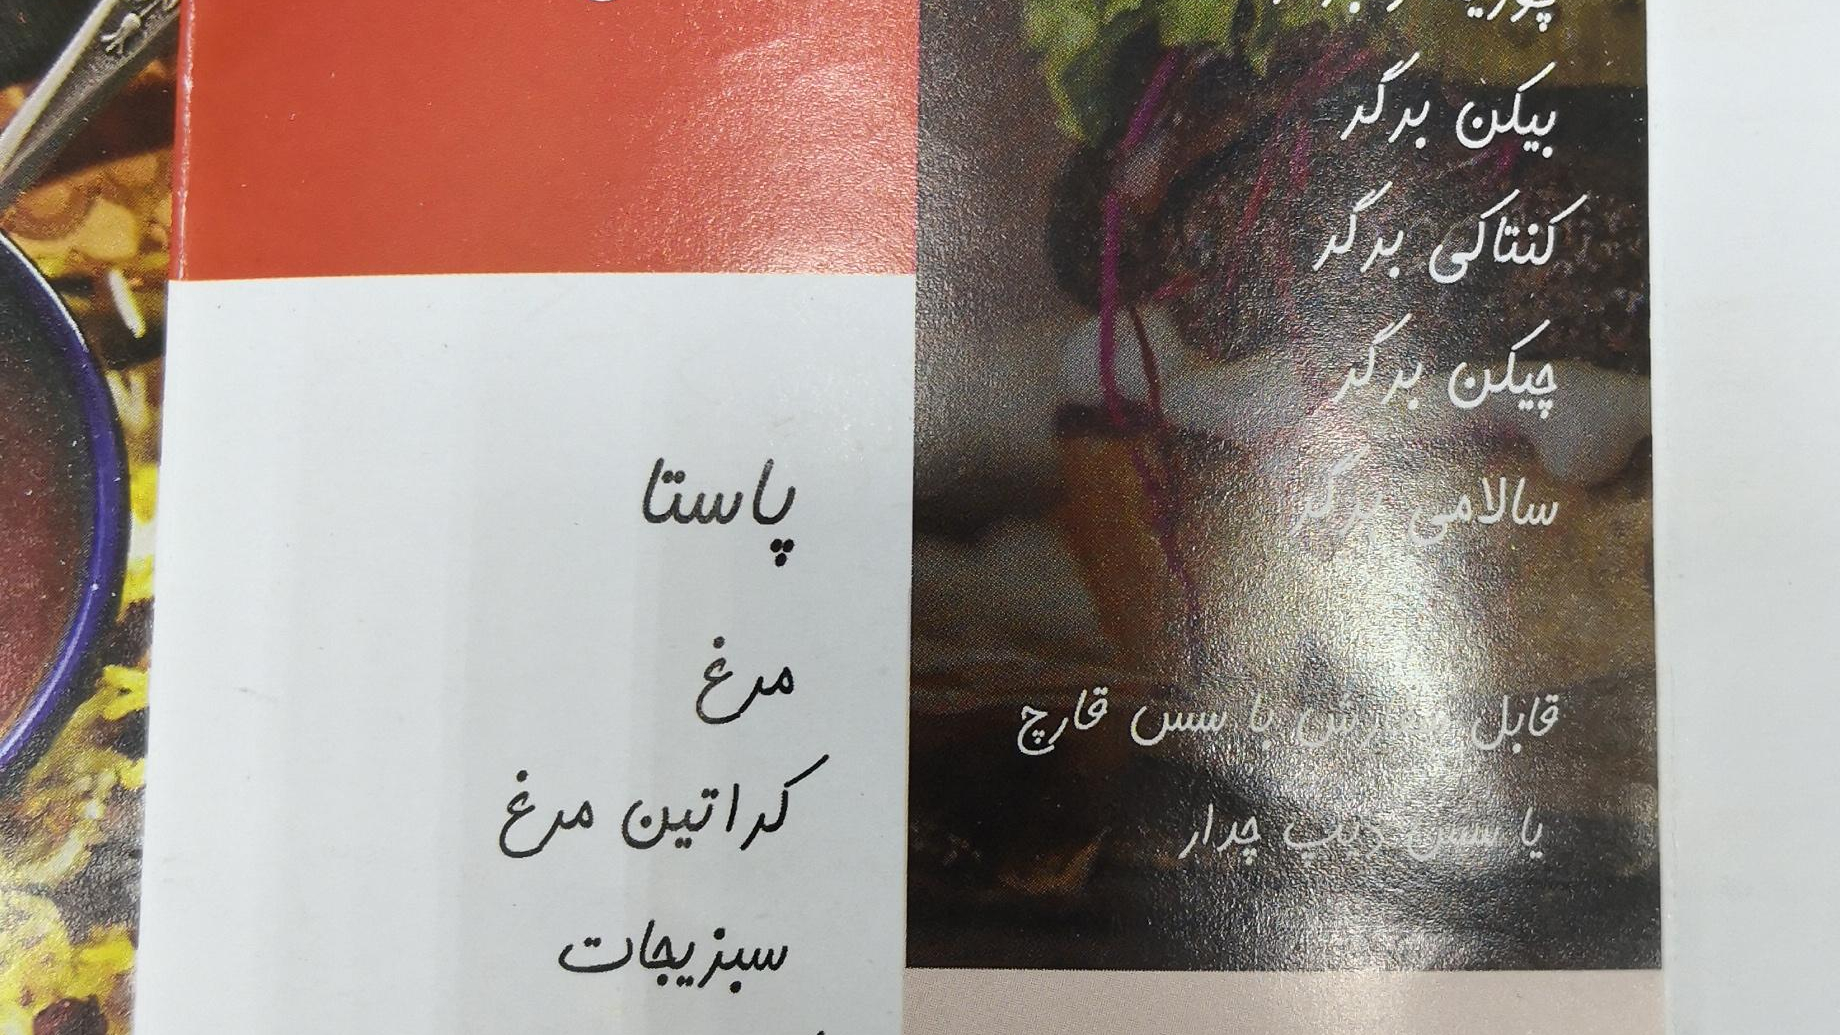 بیکن برگر
کنتاکی برگر
چیکن برگر
سالامی برگر
قابل سفارش با سس قارچ
یا سس دیپ چدار
پاستا
مرغ
کراتین مرغ
سبزیجات